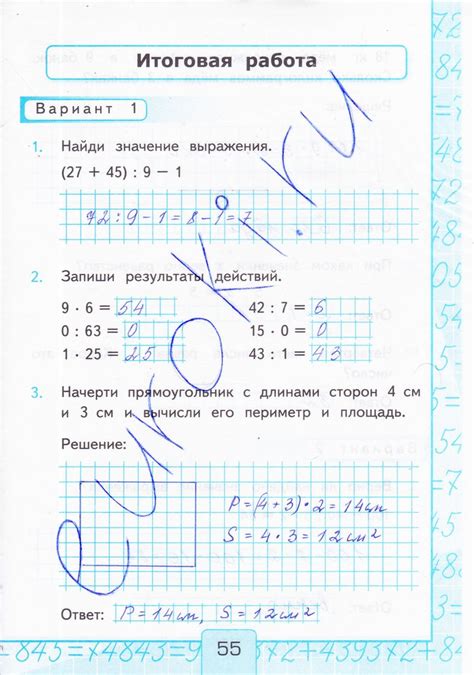 Итоговая работа
Вариант 1
1. Найди значение выражения.
(27 + 45) : 9 − 1
72 : 9 - 1 = 8 - 1 = 7
2. Запиши результаты действий.
9 · 6 = 54 42 : 7 = 6
0 : 63 = 0 15 · 0 = 0
1 · 25 = 25 43 : 1 = 43
3. Начерти прямоугольник с длинами сторон 4 см
и 3 см и вычисли его периметр и площадь.
Решение:
P = (4 + 3) · 2 = 14 см
S = 4 · 3 = 12 см²
Ответ: P = 14 см, S = 12 см²
55